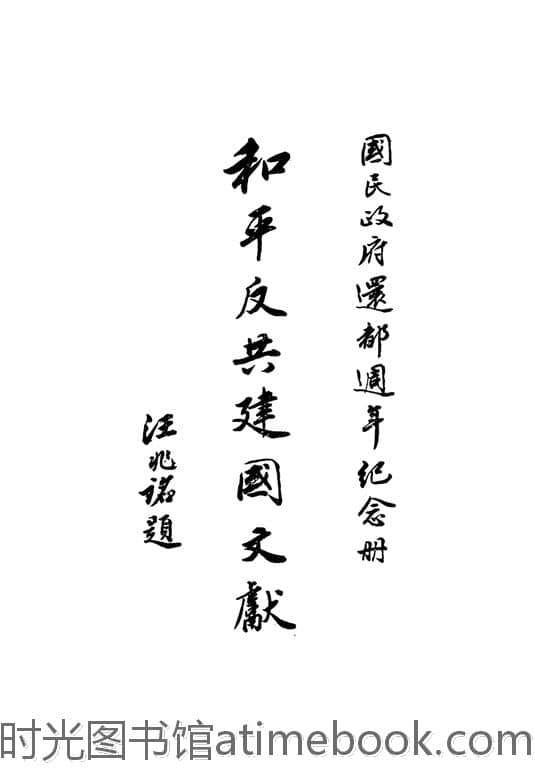 國民政府還都週年纪念册
和平反共建國文獻
汪兆銘題
时光图书馆atimebook.com